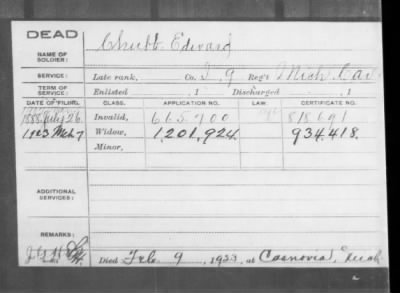 DEAD
NAME OF SOLDIER: Chubb Edward
SERVICE: Late rank, Co. I, 9 Reg't Mich. Cav.
TERM OF SERVICE: Enlisted , 1 Discharged , 1
DATE OF FILING. CLASS. APPLICATION NO. LAW. CERTIFICATE NO.
1888 July 26 Invalid, 665,700 818,691
1923 Mch 7 Widow, 1,201,924 934,418
Minor,
ADDITIONAL SERVICES:
REMARKS:
Died Feb. 9, 1923, at Casnovia, Mich